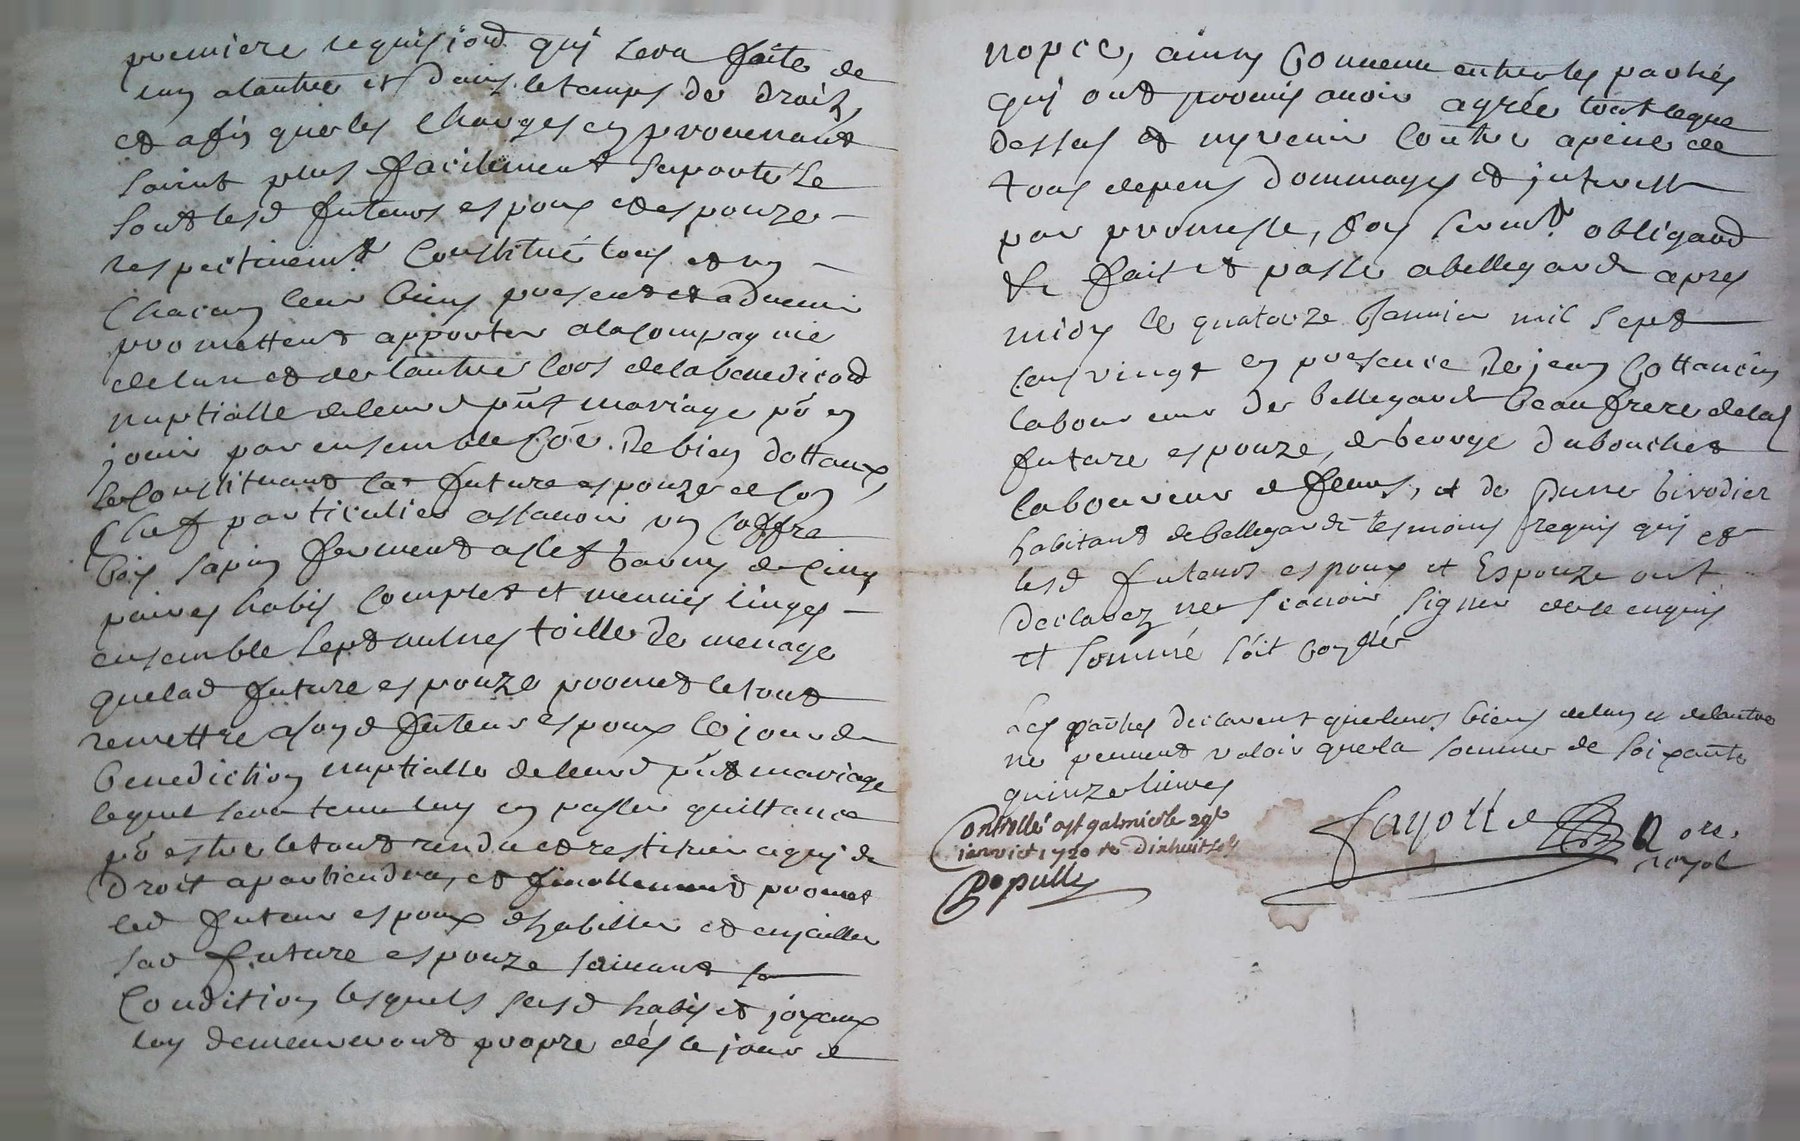 premiere requisiond qui sera faite de
lun alautre et dans letemps de droit,
et afin que les charges en provenant
soint plus facilement suportés se
sont lesd futeurs espoux et espouze
respectivemt. constitué tous et un
chacung leur biens presentz et advenir
promettent apporter alacompagnie
delun et de lautre lors delabenediond
nuptialle deleurd pñt mariage põ en
jouir par ensemble cõe de bien dottaux,
se constituant lad future espouze de son
chef particulier assavoir un coffre
bois sapin fermant aclef garny de cinq
paires habis complet et menues linges
ensemble sept aulnes toille de menage
quelad future espouze promet letout
remettre asond futeur espoux le jour de
benediction nuptialle deleurd pñt mariage
lequel sera tenu luy en passer quittance
põ estre letout rendu et restitué aquy de
droit apartiendra, et finallement promet
led futeur espoux dhabiller et enjoiller
sad future espouze suivant sa
condition lesquels susd habis et joyaux
luy demeureront propre dés le jour de
nopce, ainsy convenu entre les parties
qui ont promis avoir agréé tout ceque
dessus et ny venir contre apene de
tous depens dommages et interestz
par promesse, foy sermt. obligaond
&c fait et passé abellegarde apres
midy le quatorze janvier mil sept
cens vingt en presence de jean Cottancin
laboureur de bellegarde beaufrere delad
future espouze, de george dubouchet
laboureur de fleurs, et de pierre birodier
habitant de bellegarde tesmoins requis qui et
lesd futeurs espoux et Espouze ont
declarez ne scavoir signer de ce enquis
et sommé soit controllé
Les parties declarent que leurs biens delun et delautre
ne peuvent valoir que la somme de soixante
quinze livres
Controllé a st galmier le 29e
janvier 1720 R dixhuit sols
Populle
Fayolle
No.re
royal